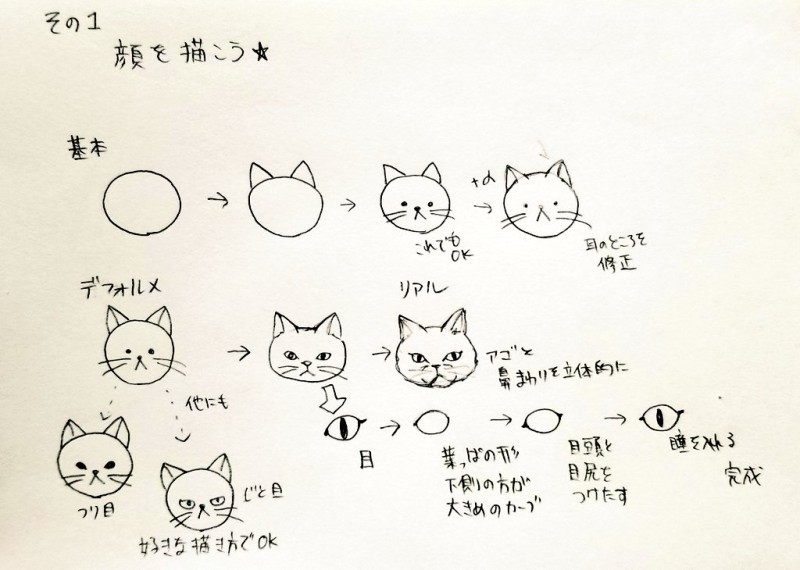 その1
顔を描こう★
基本
これでも
OK
+α
耳のところを
修正
デフォルメ
リアル
アゴと
鼻まわりを立体的に
他にも
ツリ目
じと目
好きな描き方でOK
目
葉っぱの形
下側の方が
大きめのカーブ
目頭と
目尻を
つけたす
瞳を入れる
完成